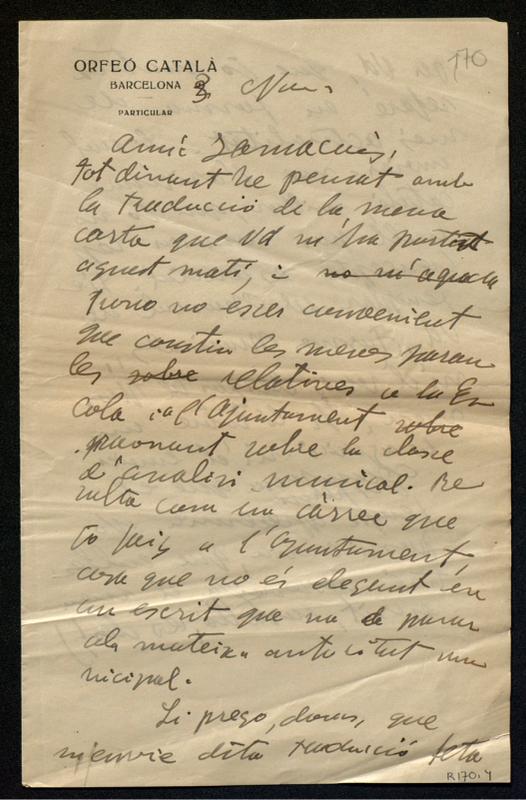 170
ORFEÓ CATALÀ
BARCELONA 3 Nov.
PARTICULAR
Amic Zamacois,
Tot dinant he pensat amb
la traducció de la meva
carta que Vd m'ha portat
aquest matí, i no m'agrada
trovo no esser convenient
que constin les meves parau
les sobre relatives a la Es
cola i a l'Ajuntament sobre
raonant sobre la classe
d'analisi musical. Re
sulta com un càrrec que
jo faig a l'Ajuntament,
cosa que no és elegant en
un escrit que va a parar
a la mateixa autoritat mu
nicipal.
Li prego, doncs, que
m'envie dita traducció feta
R170.4